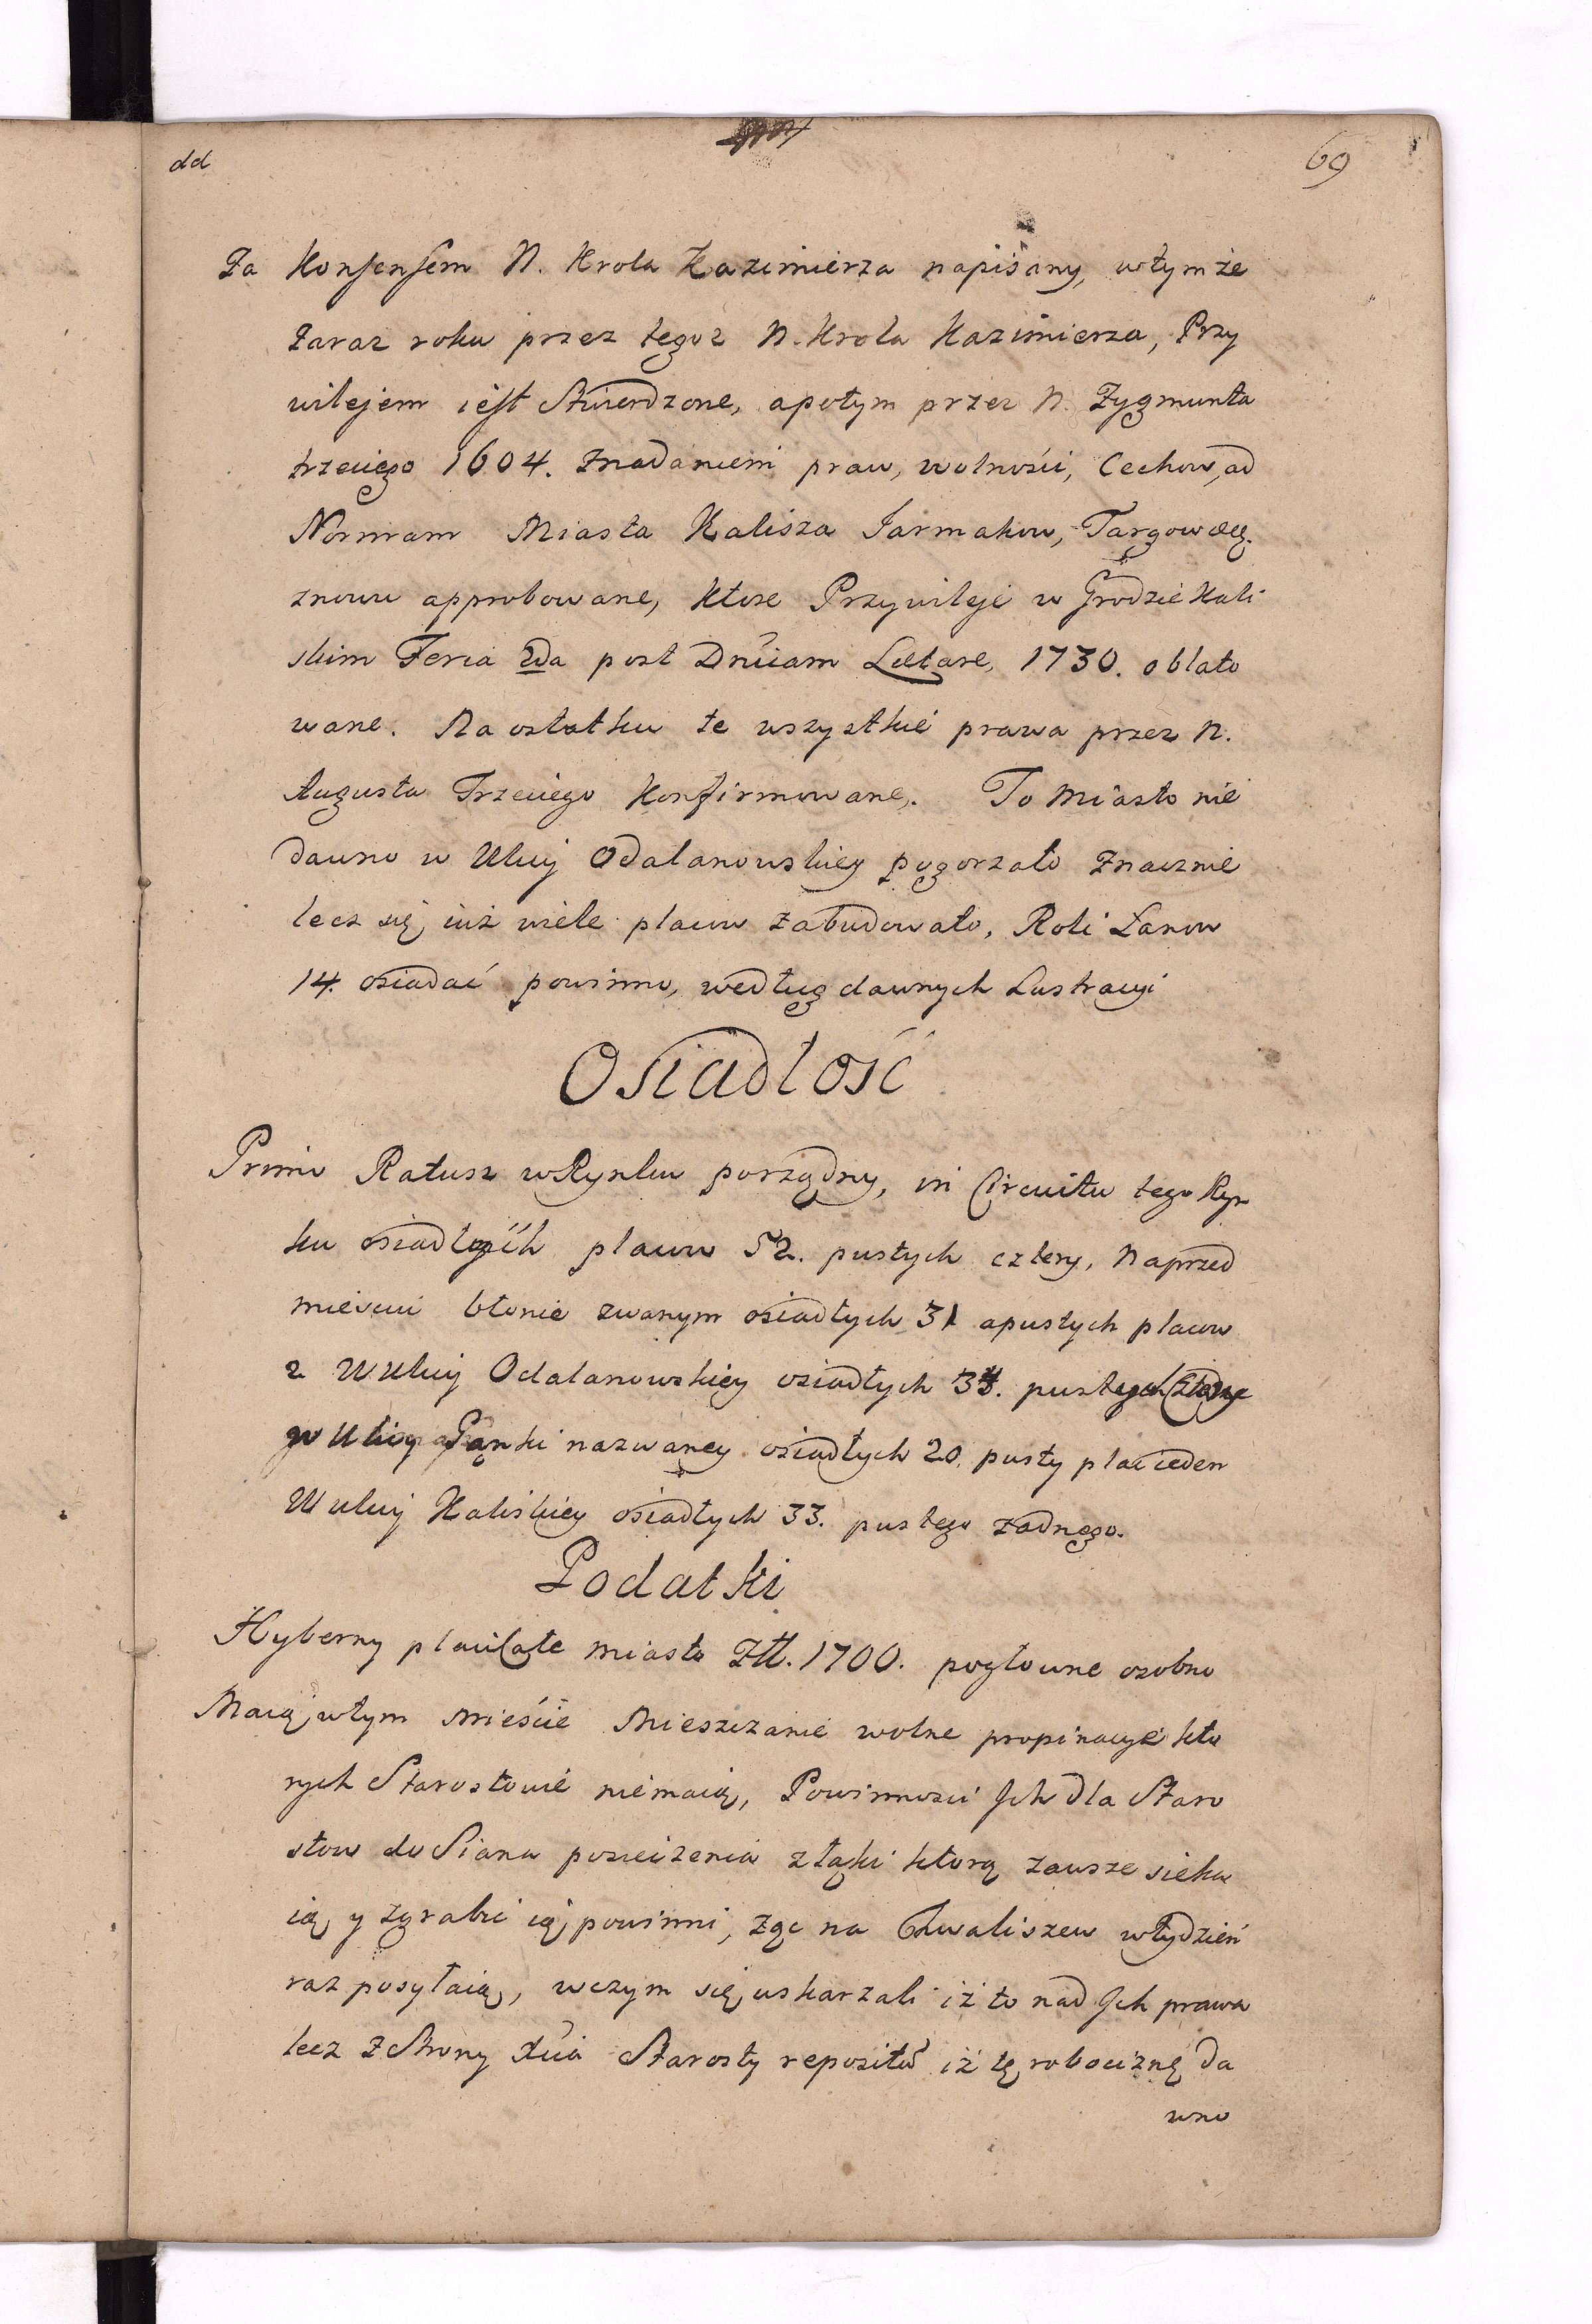 dd
69
Za Konsensem N. Krola Kazimierza napisany, wtymże
zaraz roku przez tegoz N. Krola Kazimierza, Przy
wilejem iest stwierdzone, apotym przez N. Zygmunta
trzeciego 1604. znadaniem praw, wolności, Cechow, ad
Normam Miasta Kalisza Jarmakow, Targow etc.
znowu approbowane, ktore Przywileje w Grodzie Kali
skim Feria 2da post Dnicam Laetare, 1730. oblato
wane. Na ostatku te wszystkie prawa przez N.
Augusta Trzeciego konfirmowane,. To Miasto nie
dawno w Ulicy Odalanowskiey pogorzało znacznie
lecz się iuż wiele placow zabudowało, Roli Łanow
14. osiadać powinno, według dawnych Lustracyi
Osiadłość
Primo Ratusz wRynku porządny, in Circuitu tego Ryn
ku osiadłych placow 52. pustych cztery, Naprzed
mieściu błonie zwanym osiadłych 31 apustych placow
2 WUlicy Odalanowskiey osiadłych 34. pustych
w Ulicy Pąnki nazwaney osiadłych 20. pusty plac ieden
W ulicy Kaliskiey osiadłych 33. pustego żadnego.
Podatki
Hyberny płaci całe miasto Złł. 1700. pogłowne osobno
Maią wtym mieście Mieszczanie wolne propinacye kto
rych Starostowie niemaią, Powinnosci Jch dla Staro
stow do Siana powiezienia złąki ktorą zawsze sieka
ią y zgrabić ią powinni, żąc na Chwaliszew wtydzień
raz posyłaią, wczym się uskarzali iż to nad Jch prawa
lecz z Strony Starosty repositũ iż tę robociznę da
wno